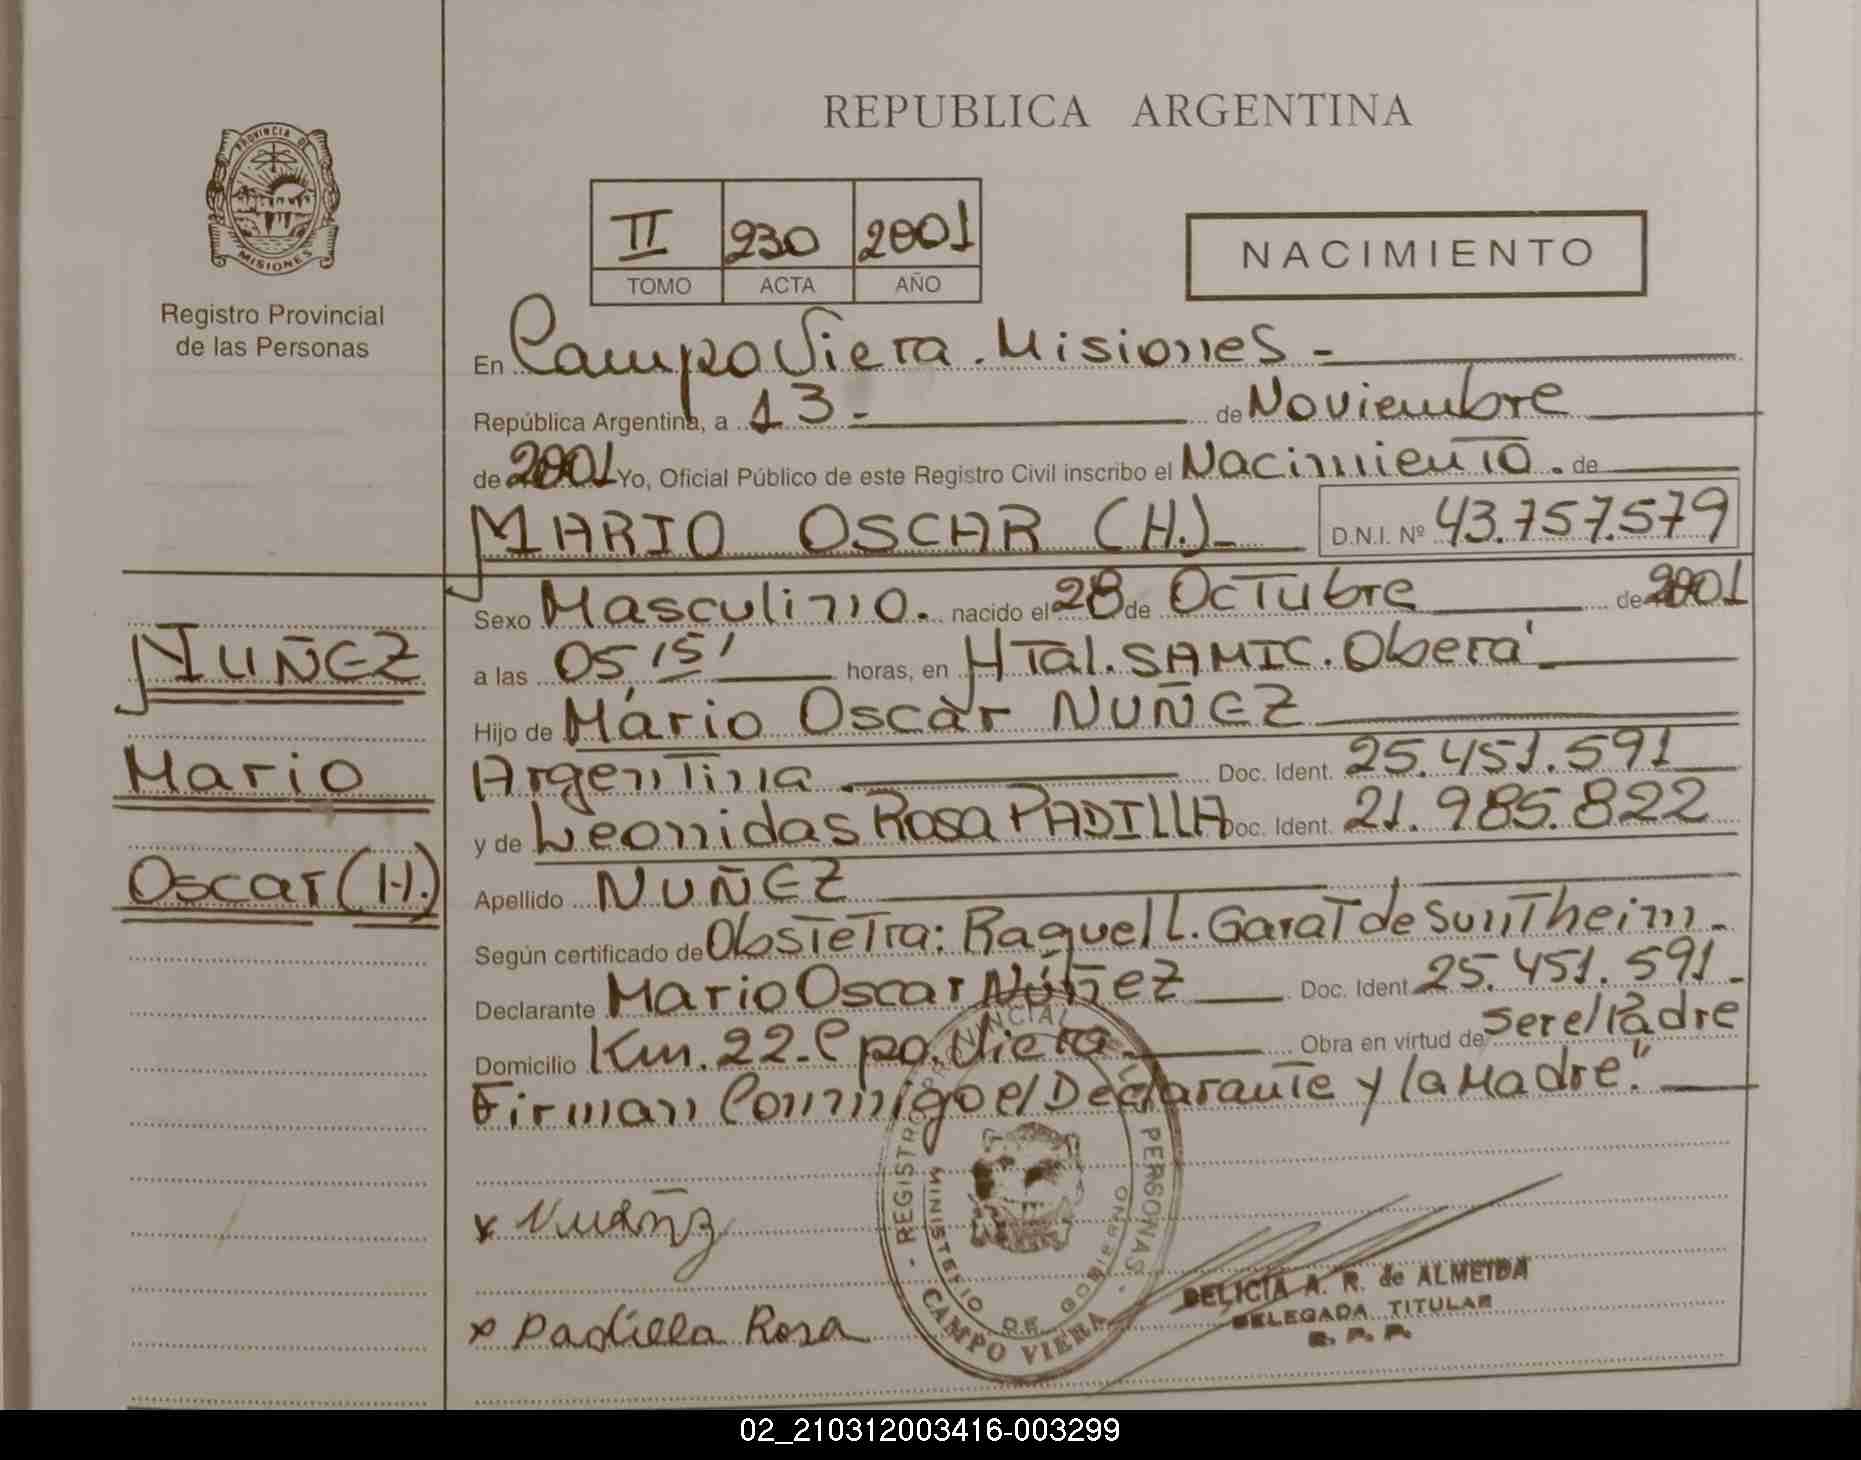 REPUBLICA ARGENTINA
PROVINCIA DE
MISIONES
Registro Provincial
de las Personas
II 230 2001
TOMO ACTA AÑO
NACIMIENTO
En Campo Viera. Misiones -
República Argentina, a 13- de Noviembre
de 2001 Yo, Oficial Público de este Registro Civil inscribo el Nacimiento. de
MARIO OSCAR (H.)- D.N.I. Nº 43.757.579
Sexo Masculino. nacido el 28 de Octubre de 2001
a las 05,15' horas, en HTal. SAMIC. Oberá
Hijo de Mario Oscar NUÑEZ
Argentina Doc. Ident. 25.451.591
y de Leonidas Rosa PADILLA Doc. Ident. 21.985.822
Apellido NUÑEZ
Según certificado de Obstetra: Raquel L. Garat de Suntheim-
Declarante Mario Oscar Núñez Doc. Ident 25.451.591-
Domicilio Km. 22-Cpo. Viera Obra en virtud de ser el Padre
Firman Conmigo el Declarante y la Madre."
NUÑEZ
Mario
Oscar (H.)
x Padilla Rosa
REGISTRO PROVINCIAL DE PERSONAS
MINISTERIO DE GOBIERNO
CAMPO VIERA
DELICIA A. R. de ALMEIDA
DELEGADA TITULAR
R. P. P.
02_210312003416-003299